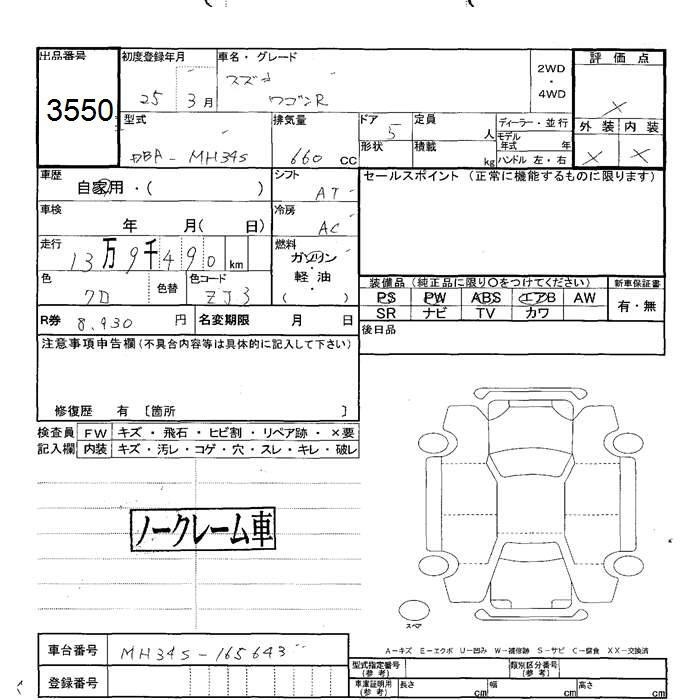 出品番号 初度登録年月 車名・グレード 評価点
3550 25 3月 スズキ 2WD・4WD ×
ワゴンR
型式 排気量 ドア 定員 ディーラー・並行 外装 内装
DBA-MH34S 660cc 5 人 モデル年式 年 × ×
形状 積載 kg ハンドル 左・右
車歴 シフト セールスポイント (正常に機能するものに限ります)
自家用・( ) AT
車検 冷房
年 月( 日) AC
走行 燃料
13万9千490km ガソリン・軽油
( )
色 色替 色コード 装備品(純正品に限り○をつけてください) 新車保証書
クロ ZJ3 PS PW ABS エアB AW 有・無
R券 8,930円 名変期限 月 日 SR ナビ TV カワ
注意事項申告欄(不具合内容等は具体的に記入して下さい) 後日品
修復歴 有 〔箇所 〕
検査員 FW キズ・飛石・ヒビ割・リペア跡・×要
記入欄 内装 キズ・汚レ・コゲ・穴・スレ・キレ・破レ
ノークレーム車
スペア
A-キズ E-エクボ U-凹み W-補修跡 S-サビ C-腐食 XX-交換済
車台番号 MH34S-165643 型式指定番号(参考) 類別区分番号(参考)
登録番号 車庫証明用(参考) 長さ cm 幅 cm 高さ cm